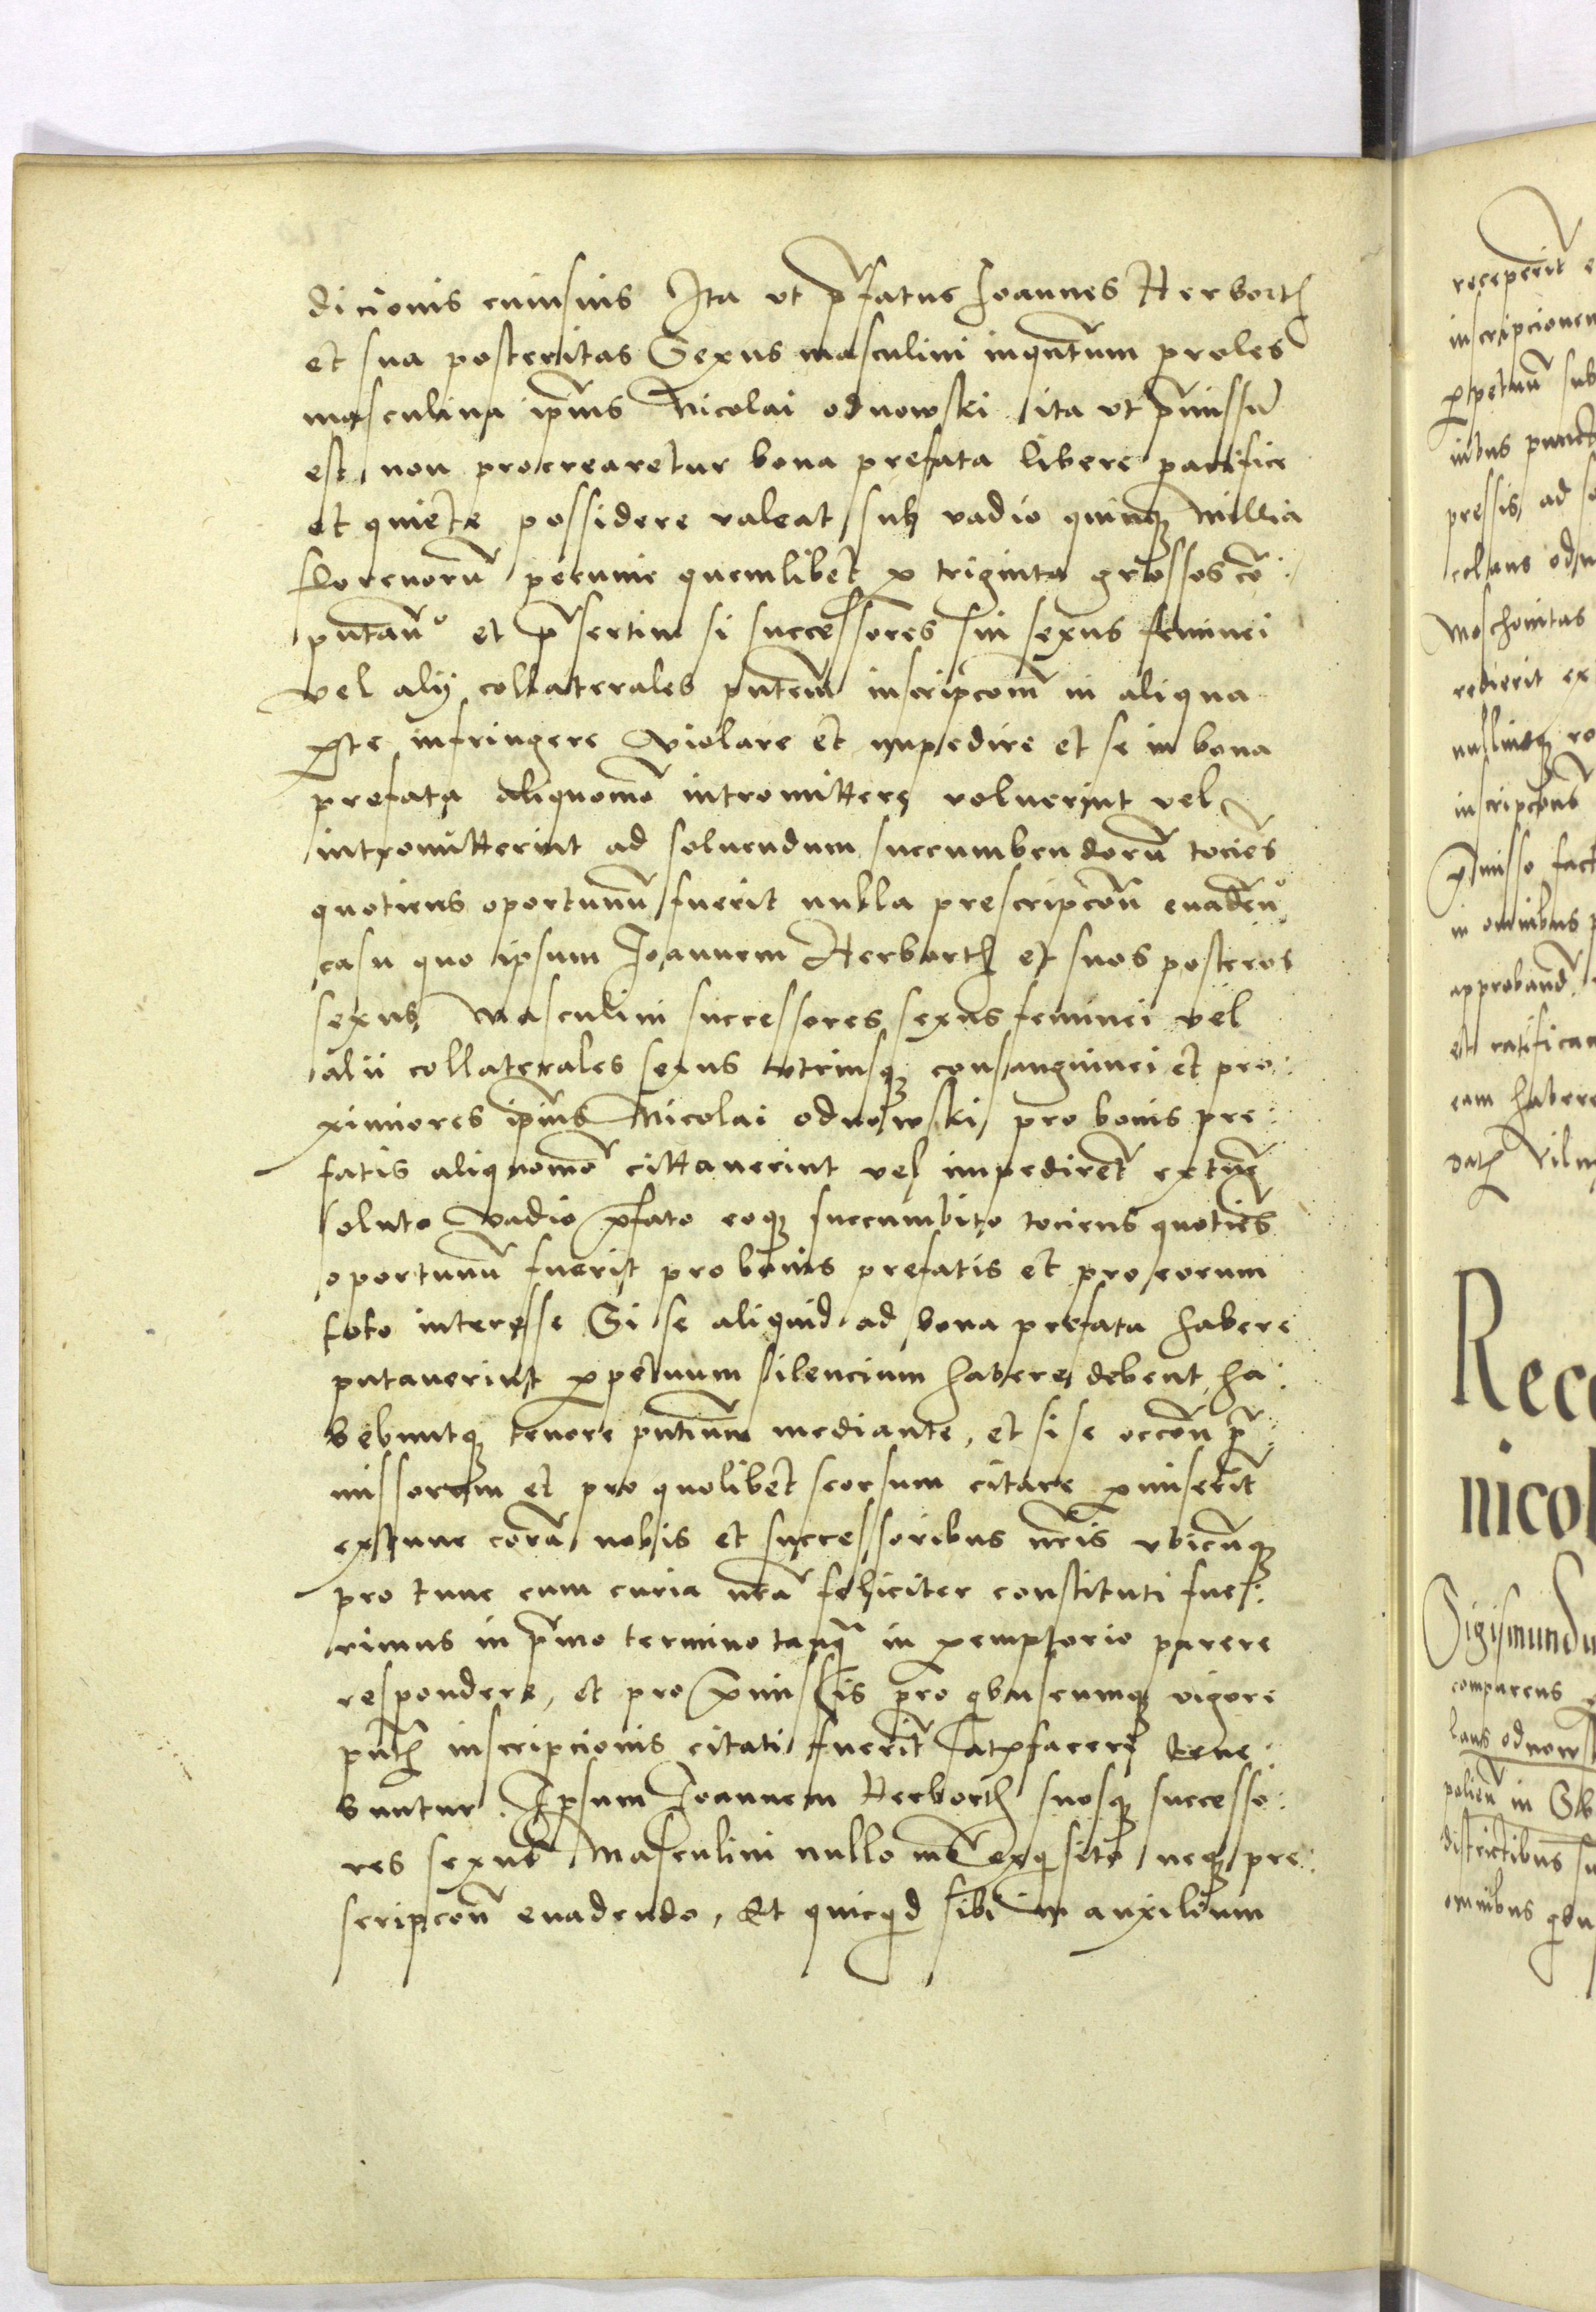 dicionis cuiusvis Ita ut p̄fatus Joannes Herborth
et sua posteritas Sexus masculini inqūtum proles
masculina ip̄ius Nicolai odnowski ita ut p̄missū
est non procrearetur bona prefata libere pacifice
et quiete possidere valeat sub vadio quinq3 Millia
florenorū pecunie quemlibet p triginta grossos cō:
putan̄º et p̄sertim si successores sui sexus feminei
vel alij collaterales pn̄tem inscripcōm in aliqua
pte infringere violare et impedire et se in bona
prefata aliquomō intromittere voluerint vel
intromitterint ad soluendum succumbendorū tociēs
quotiens oportunū fuerit nulla prescripcōn evadēnº
casu quo ipsum Joannem Herborth et suos posteros
sexus Masculini successores sexus feminei vel
alii collaterales sexus utriusq3 consanguinei et pro:
ximiores ip̄ius Nicolai odnowski pro bonis pre:
fatis aliquomō cittaverint vel impedirēt extūc
soluto vadio p̄fato eoq3 succumbito tociens quotiēs
oportunū fuerit pro bonis prefatis et pro eorum
toto interesse Si se aliquid ad bona prefata habere
putaverint ppetuum silencium habere debent ha:
bebuntq3 tenore pn̄tium mediante, et si se occōn p̄:
missorum et pro quolibet seorsum citare pmiserīt
extunc corā nobis et successoribus nr̄is ubicūq3
pro tunc cum curia nr̄a feliciter constituti fue:
rimus in p̄mo termino tanq̄ in pemptorio parere
respondere, et pro p̄missis pro qbuscumq3 vigore
pn̄t inscripcionis citati fuerīt satisfacere tene:
buntur. Ipsum Joannem Herborth suosq3 successo:
res sexus Masculini nullo iur̄e exqsito neq3 pre:
scripcōn evadendo, Et quicqd sibi in auxilium
receperit
inscripcionem
ppetuū sub
pressis, ad
Moschovitas
redierit ex
inscripcōns
p̄misso
in omnibus
approband
et ratifican
eam habere
Rec
nicol
Sigismundu
comparens
laus odnowsk
in
districtibus
omnibus